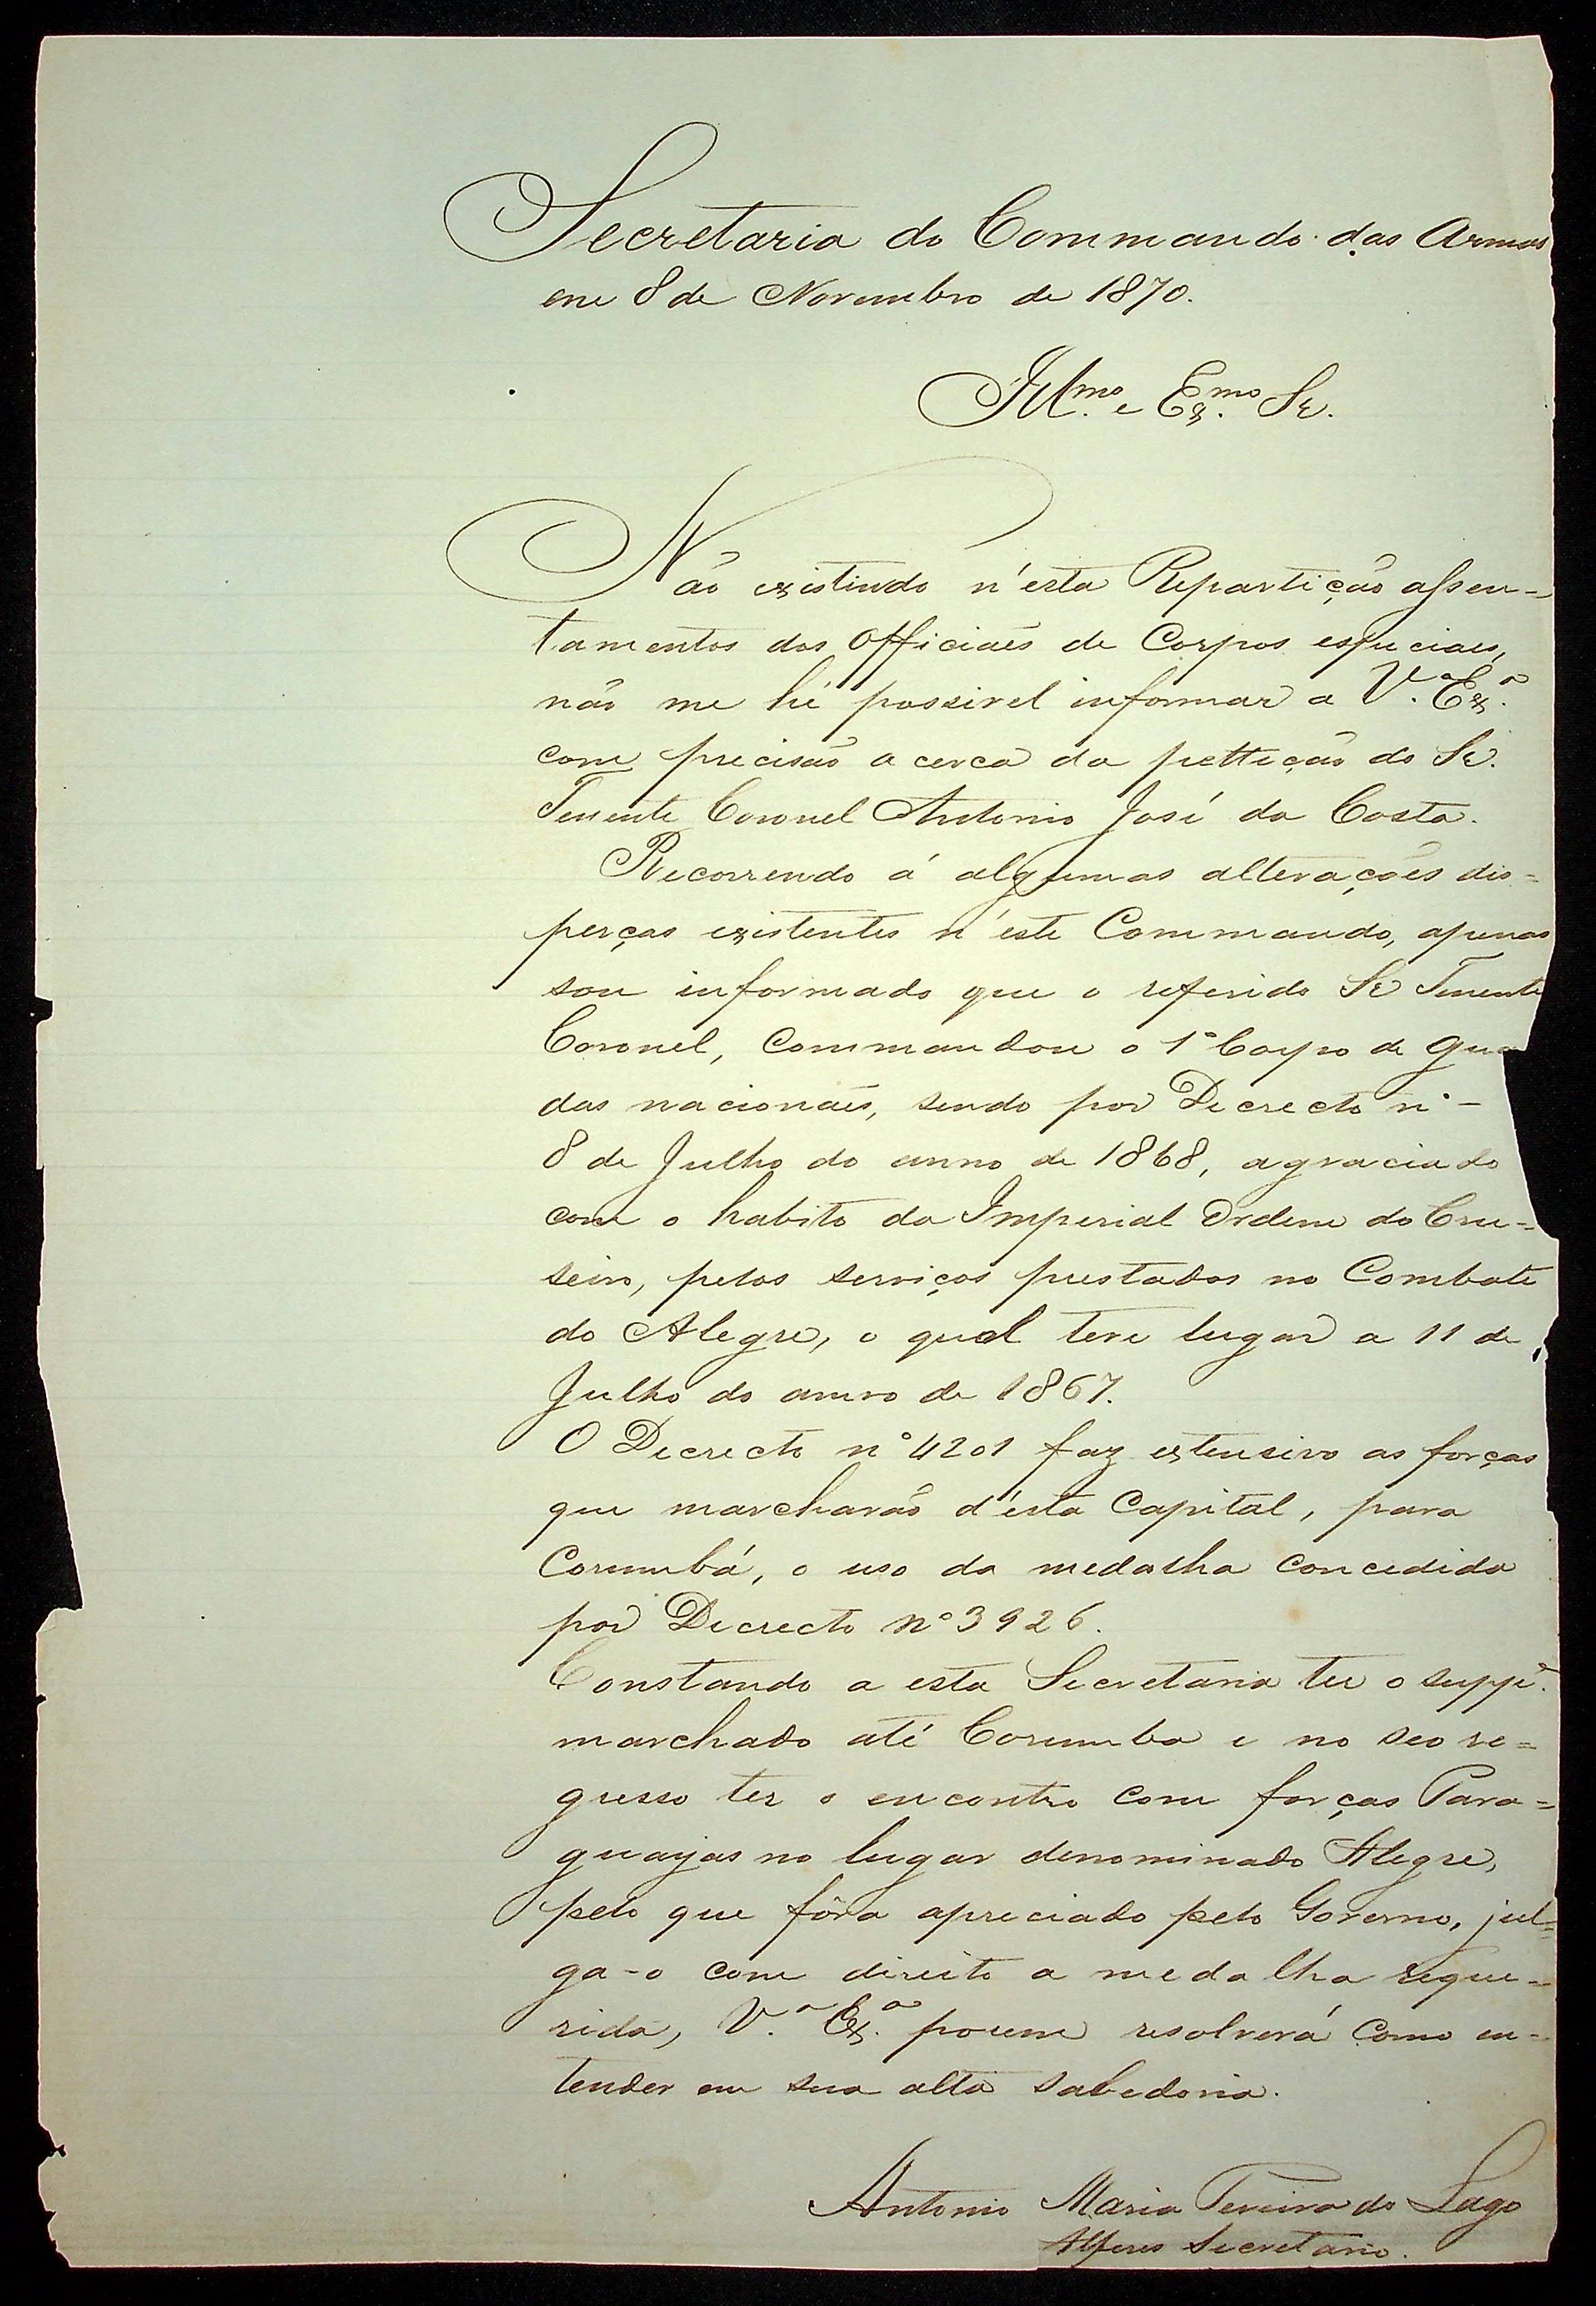 Secretaria do Commando das Armas
em 8 de Novembro de 1870.
Illmo. e Exmo. Sr.
Não existindo n'esta Repartição assen-
tamentos dos Officiaes de Corpos especiaes,
não me hé possivel informar a V.ª Ex.ª
com precisão a cerca da pettição do Sr.
Tenente Coronel Antonio José da Costa.
Recorrendo á algumas alterações dis=
perças existentes n'este Commando, apenas
sou informado que o referido Sr Tenente
Coronel, Commandou o 1º Corpo de Gua
das nacionaes, sendo por Decrecto nº -
8 de Julho do anno de 1868, agraciado
com o habito da Imperial Ordem do Cru=
seiro, pelos serviços prestados no Combate
do Alegre, o qual teve lugar a 11 de
Julho do anno de 1867.
O Decrecto nº 4201 faz extensivo as forças
que marcharão d'ésta Capital, para
Corumbá, o uso da medalha concedida
por Decrecto Nº 3926.
Constando a esta Secretaria ter o suppe.
marchado até Corumba e no seo re=
gresso ter o encontro com forças Para=
guayas no lugar denominado Alegre,
pelo que fôra apreciado pelo Governo, jul=
ga-o com direito a medalha reque=
rida, V.ª Ex.ª porem resolverá como en=
tender em sua alta sabedoria.
Antonio Maria do Lago
Alferes Secretario.